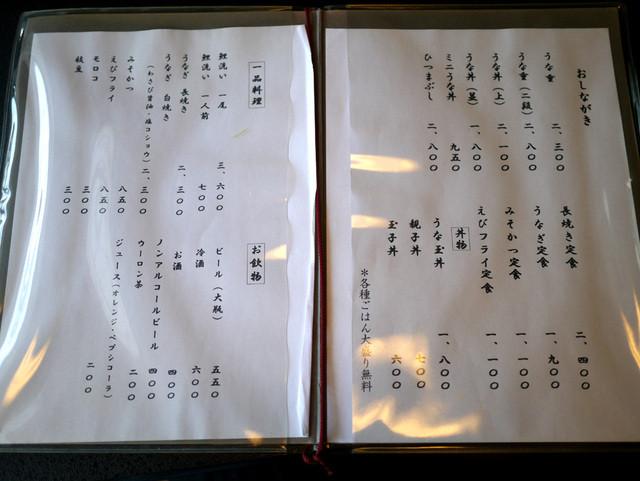 おしながき
うな重 二、三〇〇
うな重(二段) 二、八〇〇
うな丼(上) 二、一〇〇
うな丼(並) 一、八〇〇
ミニうな丼 九五〇
ひつまぶし 二、八〇〇
長焼き定食 二、四〇〇
うなぎ定食 一、九〇〇
みそかつ定食 一、一〇〇
えびフライ定食 一、一〇〇
丼物
うな玉丼 一、八〇〇
親子丼 七〇〇
玉子丼 六〇〇
＊各種ごはん大盛り無料
一品料理
鯉洗い 一尾 三、六〇〇
鯉洗い 一人前 七〇〇
うなぎ 長焼き 二、三〇〇
うなぎ 白焼き
(わさび醤油・塩コショウ) 二、三〇〇
みそかつ 八五〇
えびフライ 八五〇
モロコ 三〇〇
枝豆 三〇〇
お飲物
ビール(大瓶) 五五〇
冷酒 六〇〇
お酒 四〇〇
ノンアルコールビール 四〇〇
ウーロン茶 二〇〇
ジュース(オレンジ・ペプシコーラ) 二〇〇